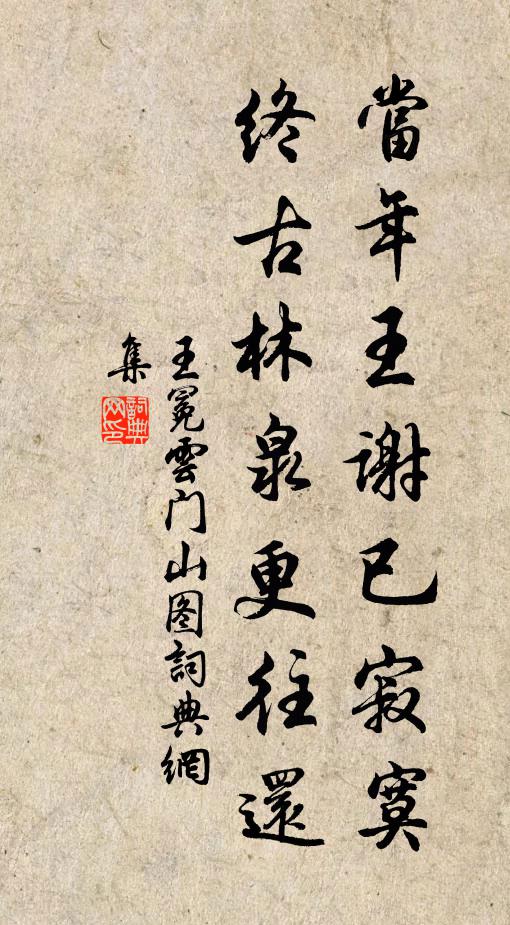 當年王谢已寂寞
終古林泉更往還
王冕雲门山图詞典網
集
詞典
网印